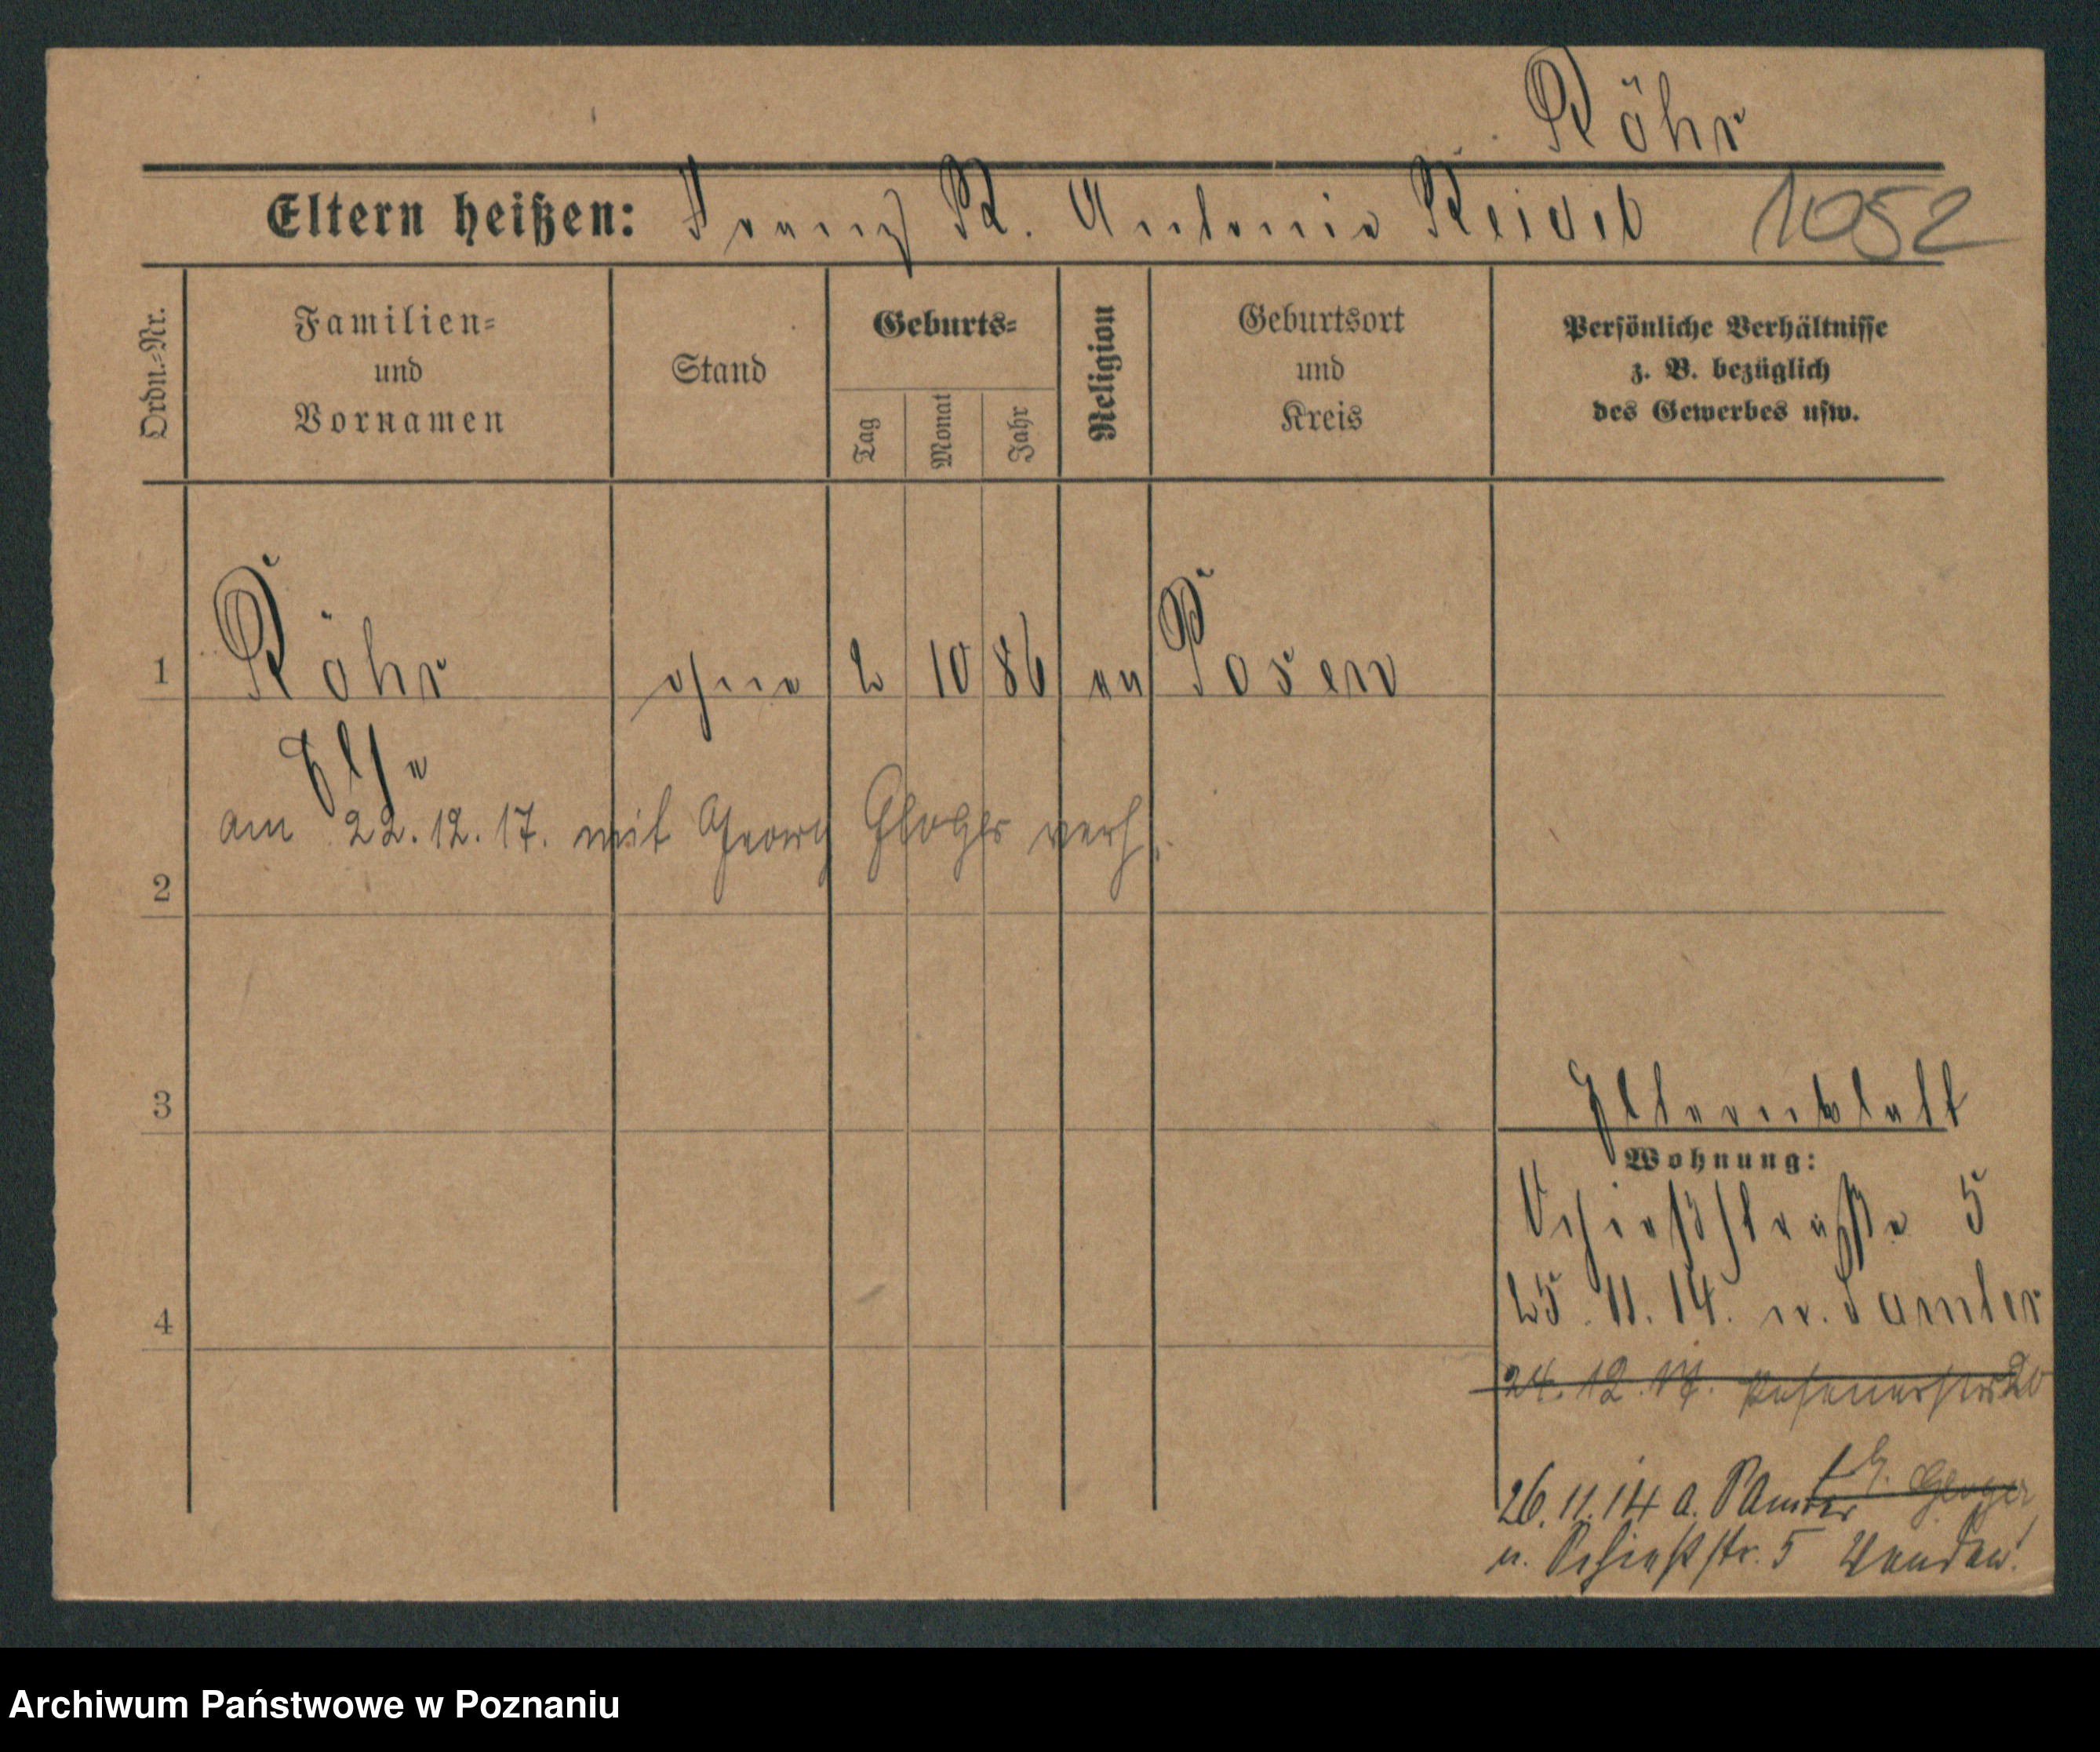 Röhr
Eltern heißen: Franz R. Antonie Reidel 1052
Ordn.-Nr.
Familien- und Vornamen
Stand
Geburts-
Tag
Monat
Jahr
Religion
Geburtsort und Kreis
Persönliche Verhältnisse
z. B. bezüglich
des Gewerbes usw.
1 Röhr ohne 2 10 86 ev Posen
Else
am 22.12.17. mit Georg Gloger verh.
2
3
Elternblatt
Wohnung:
Schießstraße 5
4
25.11.14. n. Samter
24.12.17. Posenerstr 20
b. G. Gloger
26.11.14 a. Samter
n. Schießstr. 5
Archiwum Państwowe w Poznaniu